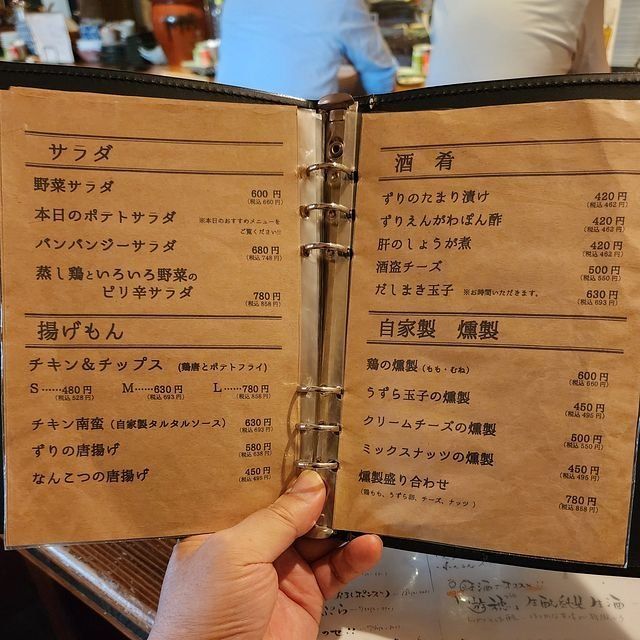 サラダ
野菜サラダ 600円
(税込 660円)
本日のポテトサラダ ※本日のおすすめメニューを
ご覧ください!!
バンバンジーサラダ 680円
(税込 748円)
蒸し鶏といろいろ野菜の
ピリ辛サラダ 780円
(税込 858円)
揚げもん
チキン&チップス (鶏唐とポテトフライ)
S……480円 M……630円 L……780円
(税込 528円) (税込 693円) (税込 858円)
チキン南蛮 (自家製タルタルソース) 630円
(税込 693円)
ずりの唐揚げ 580円
(税込 638円)
なんこつの唐揚げ 450円
(税込 495円)
酒肴
ずりのたまり漬け 420円
(税込 462円)
ずりえんがわぽん酢 420円
(税込 462円)
肝のしょうが煮 420円
(税込 462円)
酒盗チーズ 500円
(税込 550円)
だしまき玉子 ※お時間いただきます。 630円
(税込 693円)
自家製 燻製
鶏の燻製 (もも・むね) 600円
(税込 660円)
うずら玉子の燻製 450円
(税込 495円)
クリームチーズの燻製 500円
(税込 550円)
ミックスナッツの燻製 450円
(税込 495円)
燻製盛り合わせ 780円
(鶏もも、うずら卵、チーズ、ナッツ) (税込 858円)